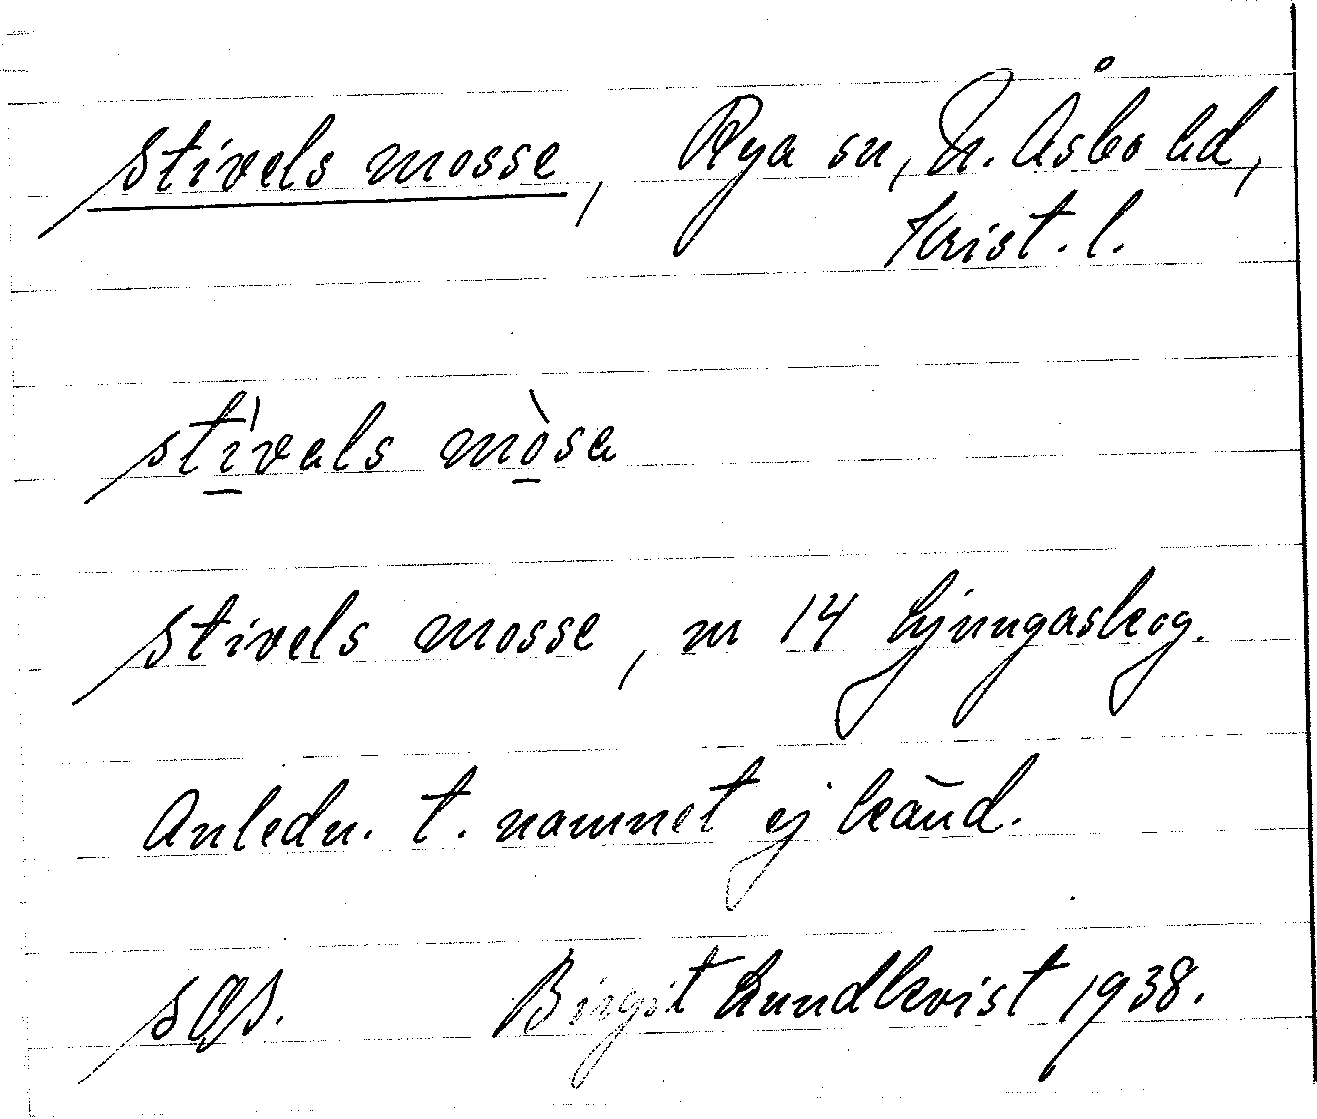 Stivels mosse, Rya sn, N. Åsbo hd,
Krist. l.
stìvals mòsa
Stivels mosse, nr 14 Ljungaskog.
Anledn. t. namnet ej känd.
SOS. Birgit Lundkvist 1938.